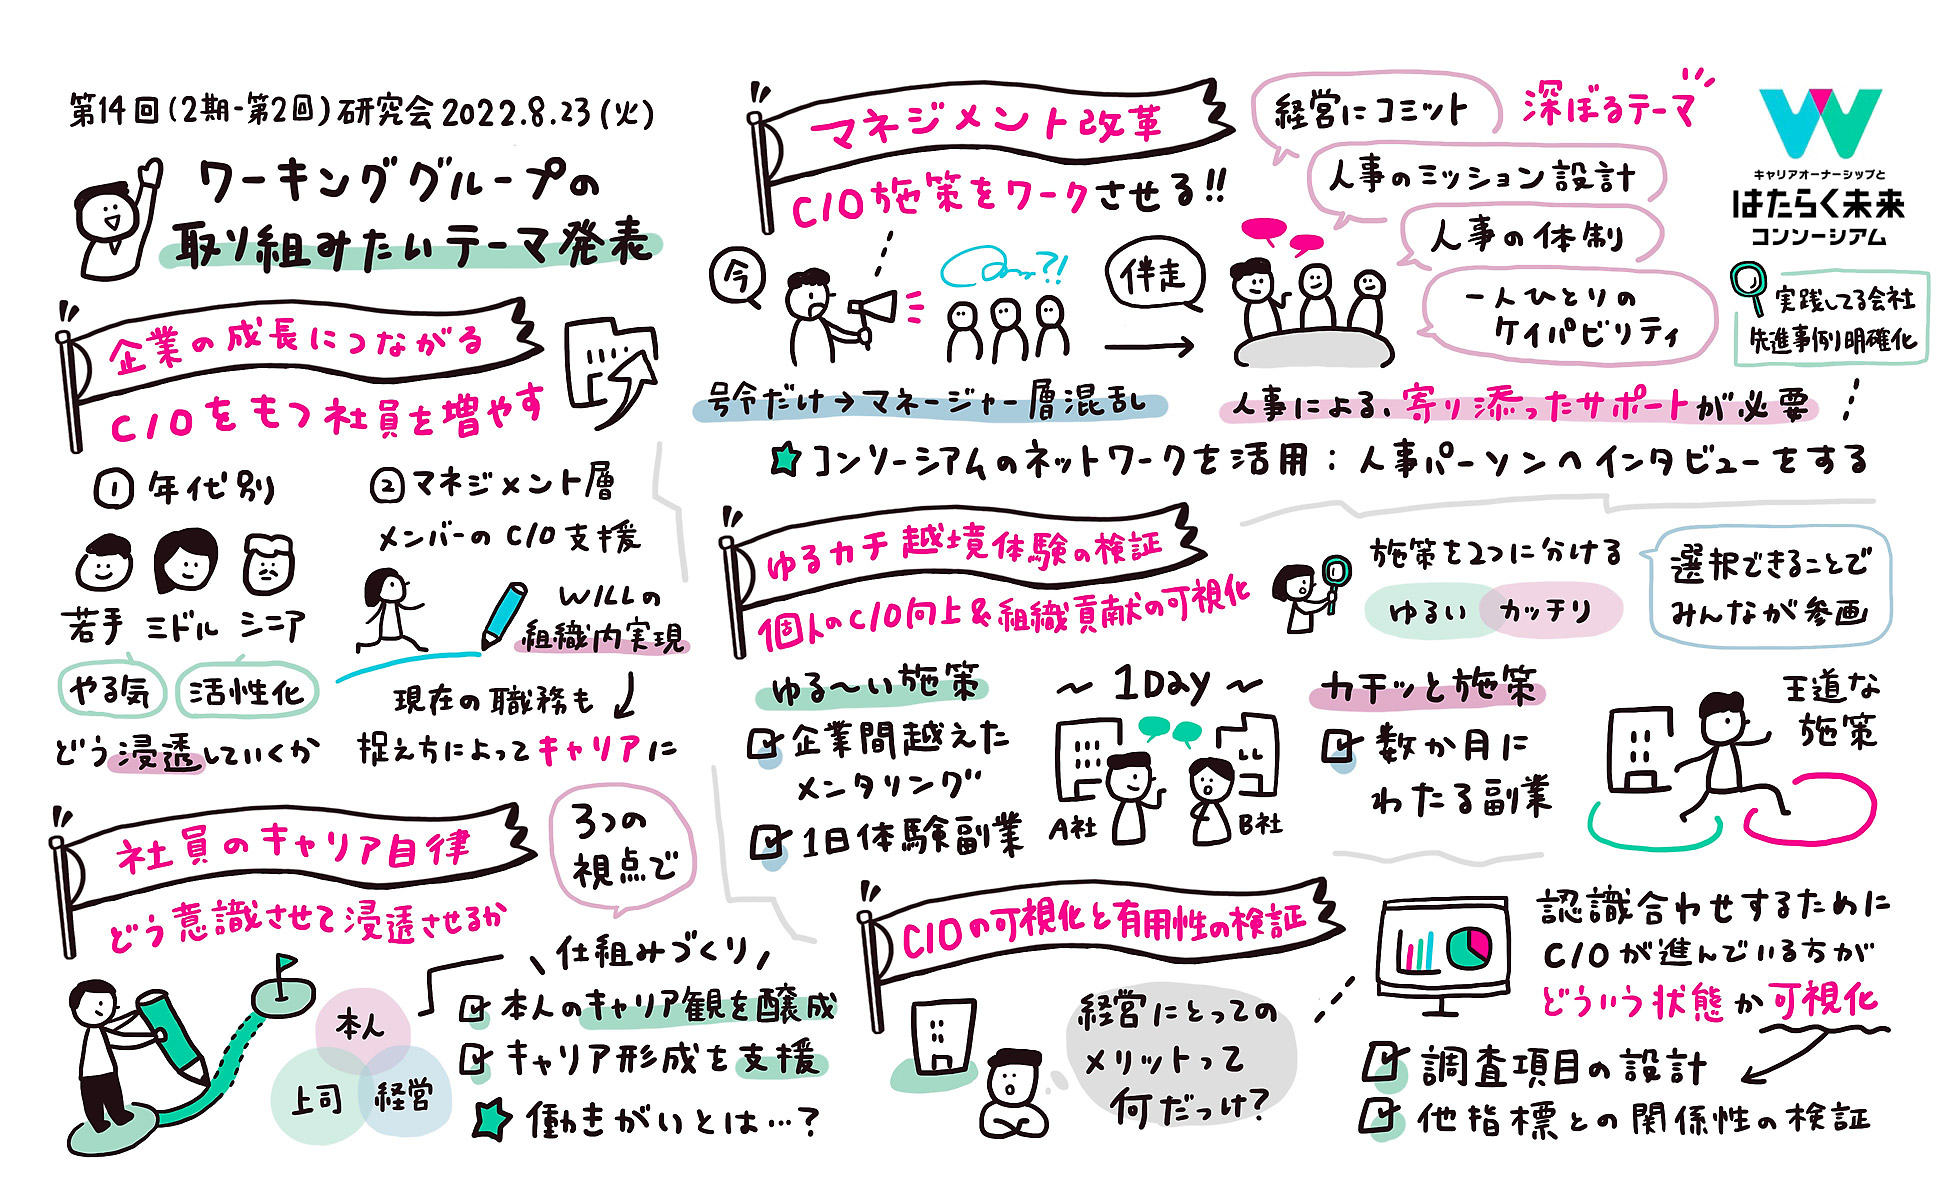 第14回(2期-第2回)研究会 2022.8.23(火)
ワーキンググループの
取り組みたいテーマ発表
企業の成長につながる
C/Oをもつ社員を増やす
① 年代別
若手 ミドル シニア
やる気 活性化
どう浸透していくか
② マネジメント層
メンバーのC/O支援
WILLの
組織内実現
現在の職務も
捉え方によってキャリアに
社員のキャリア自律
どう意識させて浸透させるか
3つの
視点で
本人
上司 経営
仕組みづくり
本人のキャリア観を醸成
キャリア形成を支援
働きがいとは…?
マネジメント改革
C/O施策をワークさせる!!
今
?!
伴走
号令だけ→マネージャー層混乱
経営にコミット
深ぼるテーマ
人事のミッション設計
人事の体制
一人ひとりの
ケイパビリティ
人事による、寄り添ったサポートが必要
コンソーシアムのネットワークを活用:人事パーソンへインタビューをする
キャリアオーナーシップと
はたらく未来
コンソーシアム
実践してる会社
先進事例明確化
ゆるカチ越境体験の検証
個人のC/O向上&組織貢献の可視化
施策を2つに分ける
ゆるい カッチリ
選択できることで
みんなが参画
ゆる〜い施策
企業間越えた
メンタリング
1日体験副業
〜1Day〜
A社 B社
カチッと施策
数か月に
わたる副業
王道な
施策
C/Oの可視化と有用性の検証
経営にとっての
メリットって
何だっけ?
認識合わせするために
C/Oが進んでいるちが
どういう状態か可視化
調査項目の設計
他指標との関係性の検証